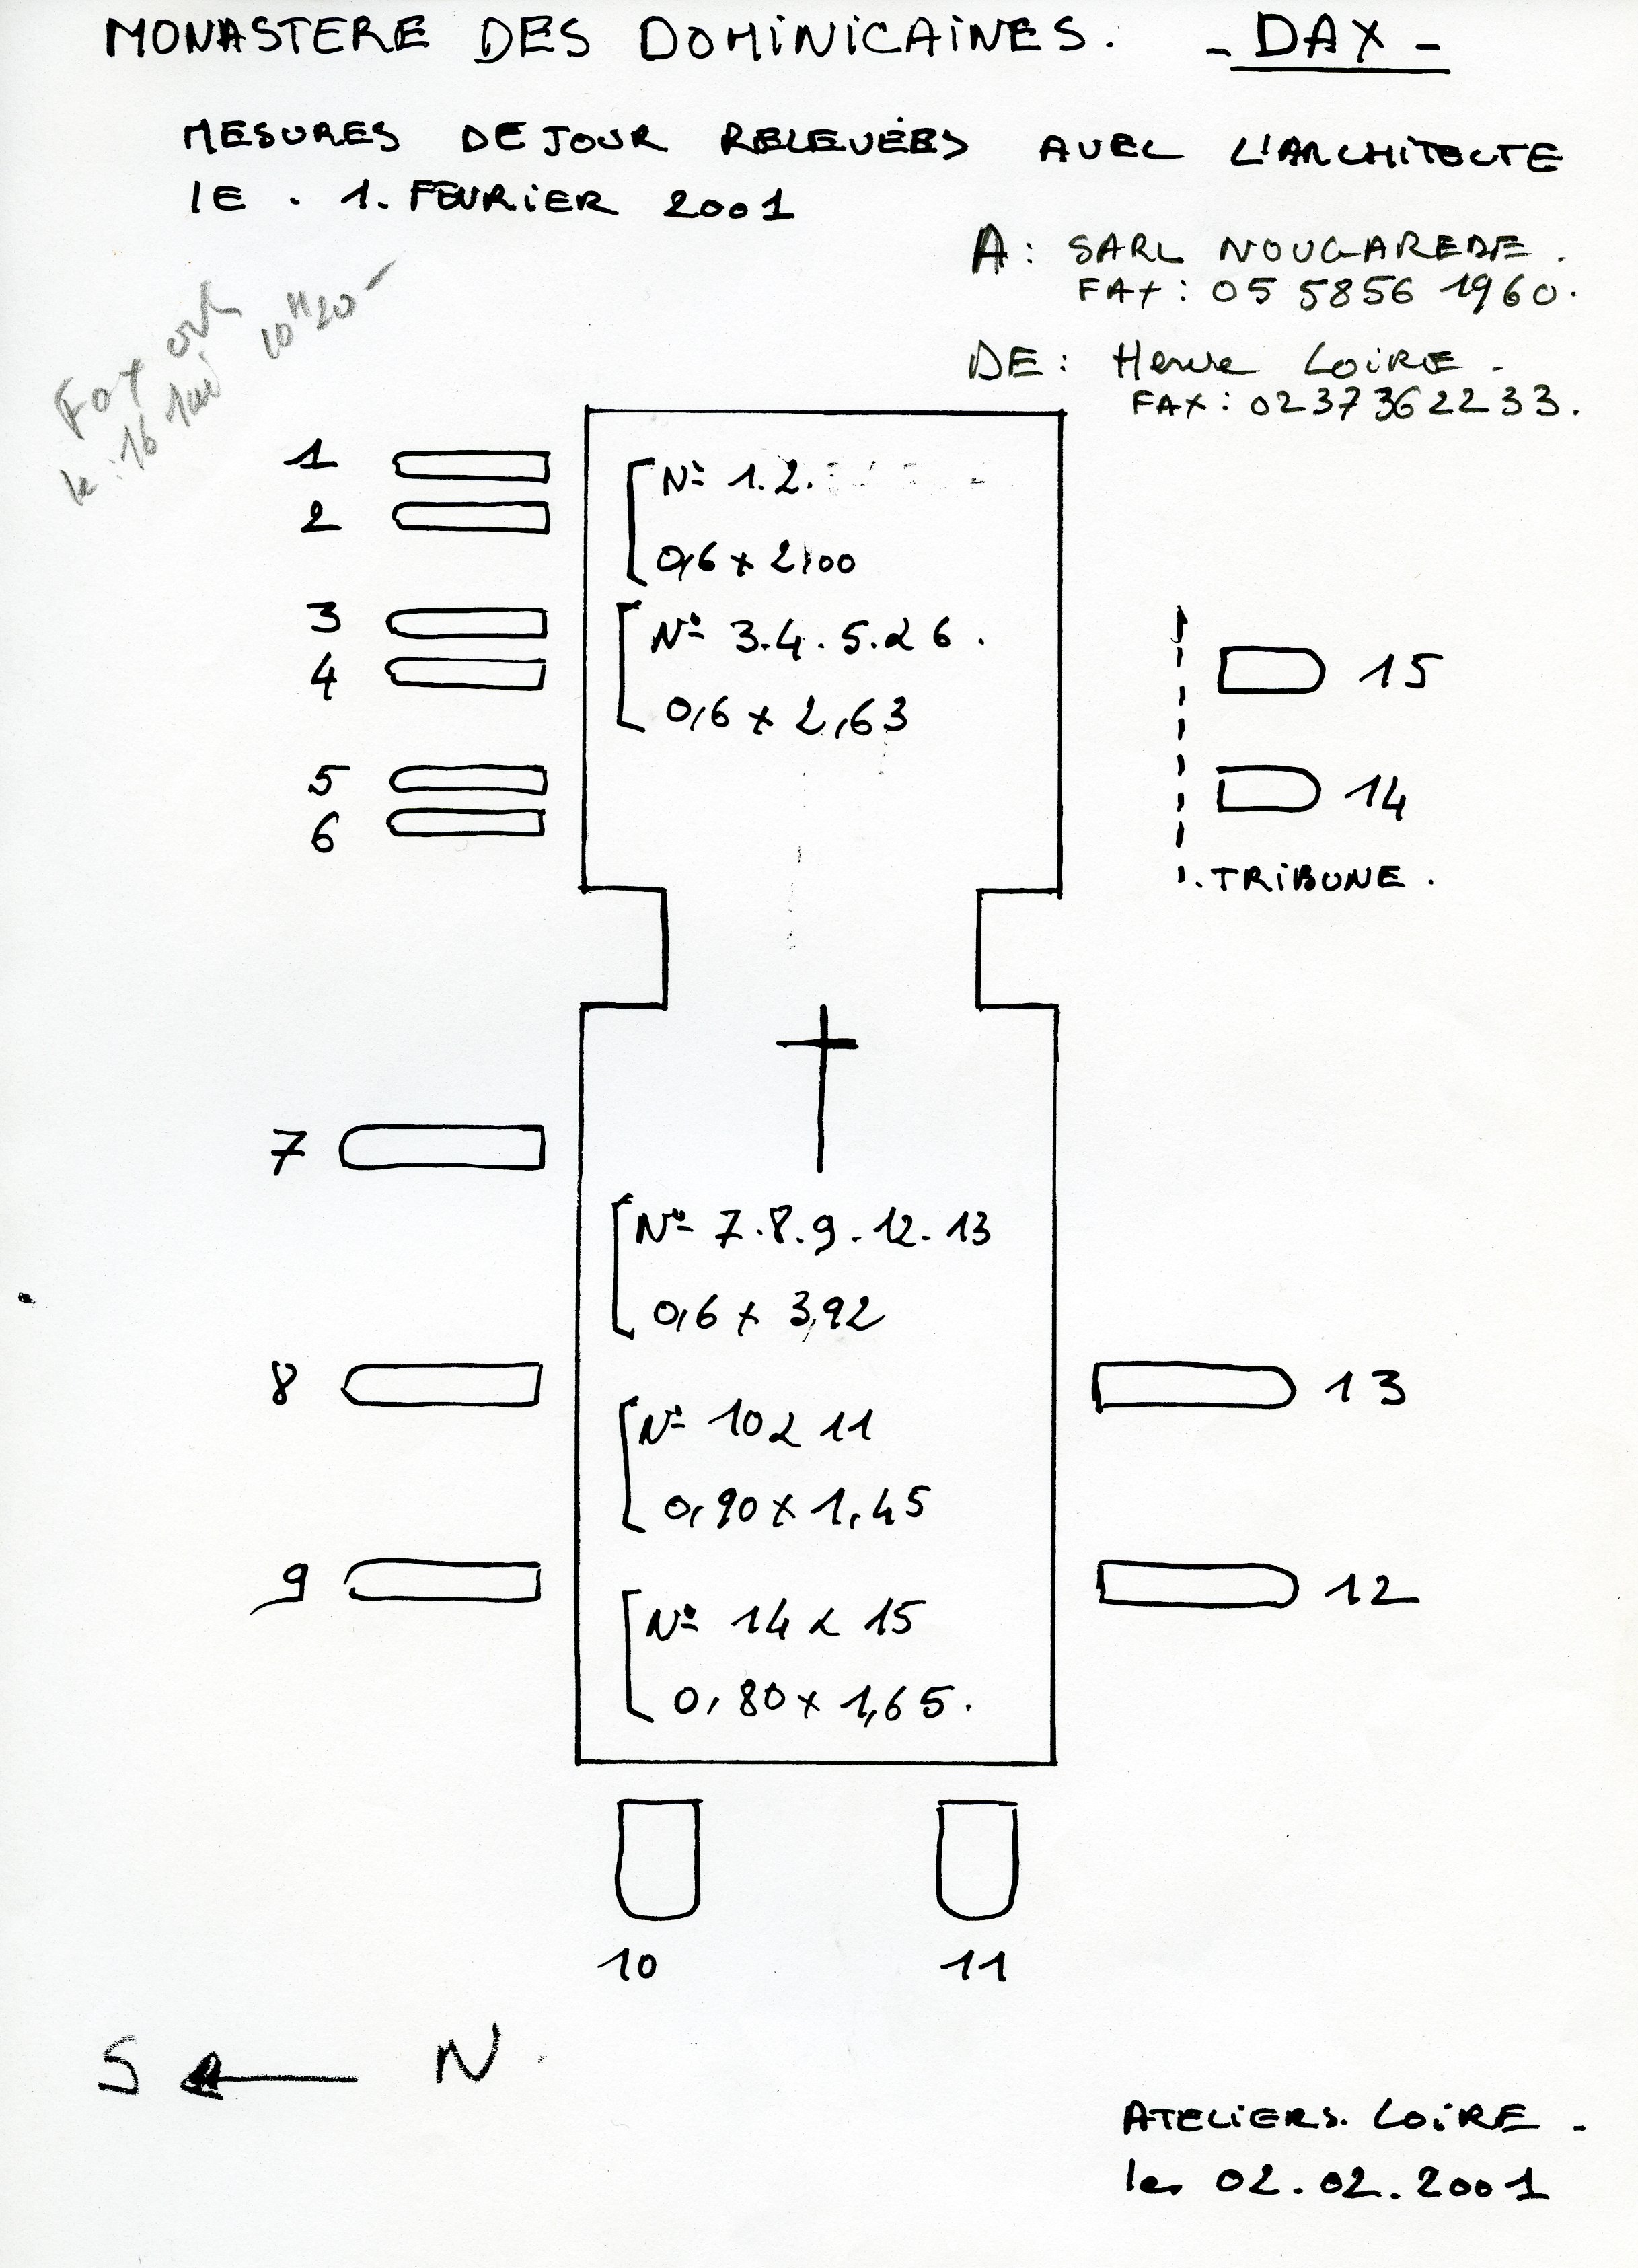 MONASTERE DES DOMINICAINES. - DAX -
MESURES DE JOUR RELEVÉES AVEC L'ARCHITECTE
lE . 1. FEVRIER 2001
A: SARL NOUGAREDE.
FAX: 05 5856 1960.
DE: Herve LOIRE -
FAX: 02 37 36 22 33.
Fax
le 16
10H20-
1
2
3
4
5
6
N° 1.2.
0,6 x 2,00
N° 3.4.5.& 6.
0,6 x 2,63
15
14
TRIBUNE.
7
8
9
N° 7.8.9.12.13
0,6 x 3,92
N° 10 & 11
0,90 x 1,45
N° 14 & 15
0,80 x 1,65.
13
12
10
11
S N
ATELIERS. LOIRE -
le 02.02.2001